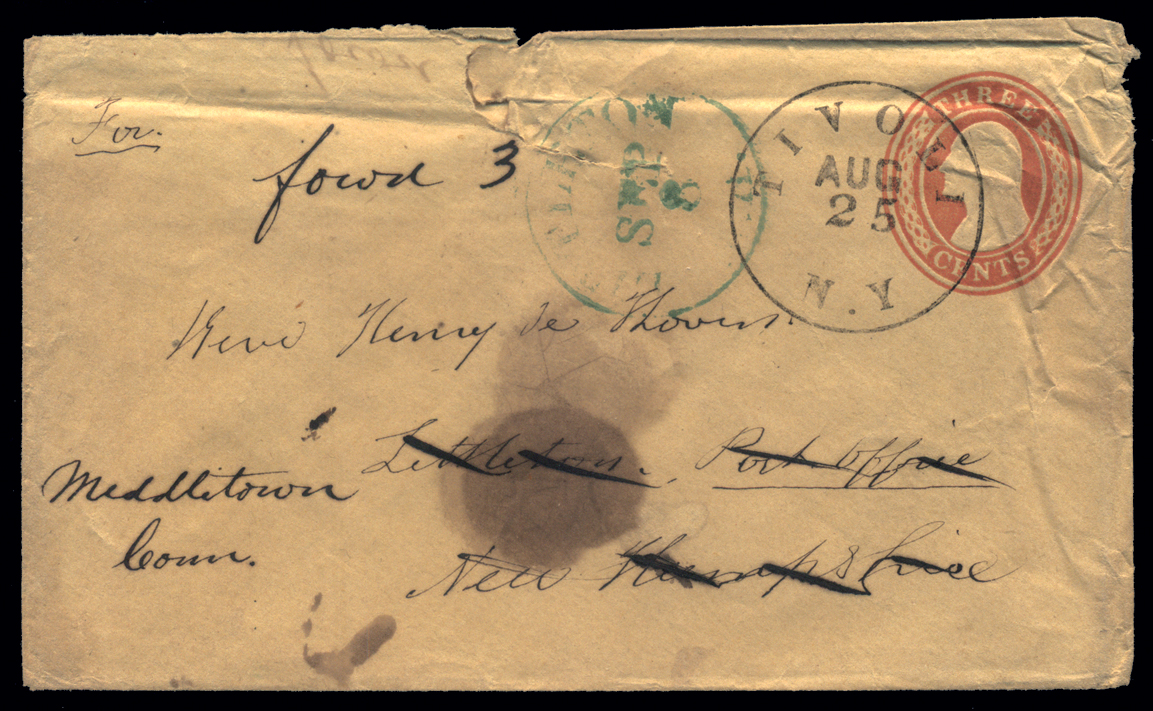 THREE
CENTS
TIVOLI
AUG
25
N.Y
SEP
8
For.
fowd 3
Henry de
Littleton. Post Office
New Hampshire
Middletown
Conn.